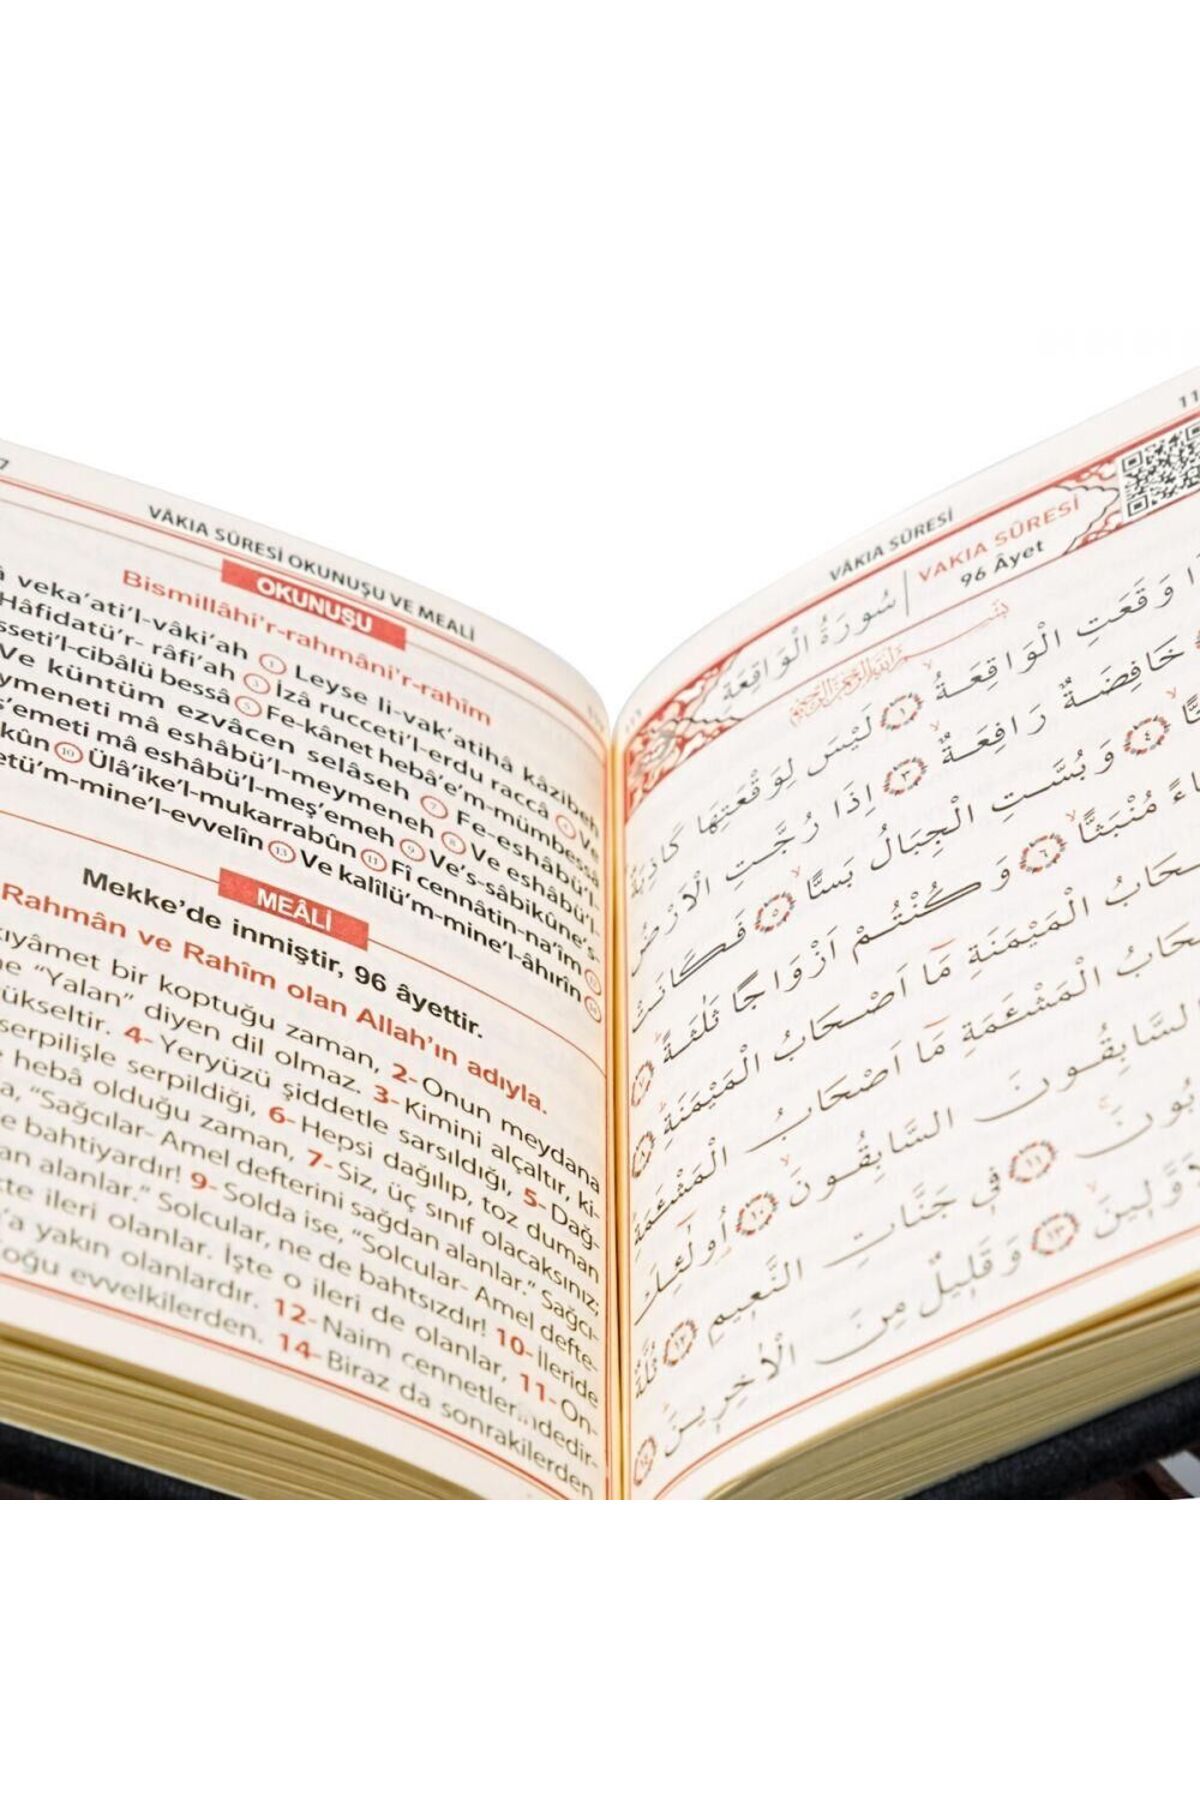 VÂKIA SÛRESİ OKUNUŞU VE MEALİ
OKUNUŞU
Bismillâhi’r-rahmâni’r-rahîm
veka’ati’l-vâki’ah 1 Leyse li-vak’atihâ kâzibeh
Hâfidatü’r- râfi’ah 3 İzâ rucceti’l-erdu raccâ 4 Ve
sseti’l-cibâlü bessâ 5 Fe-kânet hebâ’e’m-mümbessâ
Ve küntüm ezvâcen selâseh 7 Fe-eshâbü’l-
ymeneti mâ eshâbü’l-meymeneh 8 Ve eshâbü’l-
ş’emeti mâ eshâbü’l-meş’emeh 9 Ve’s-sâbikûne’s-
kûn 10 Ülâ’ike’l-mukarrabûn 11 Fî cennâtin-na’îm 12
etü’m-mine’l-evvelîn 13 Ve kalîlü’m-mine’l-âhırîn 14
MEÂLİ
Mekke’de inmiştir, 96 âyettir.
Rahmân ve Rahîm olan Allah’ın adıyla.
kıyâmet bir koptuğu zaman, 2- Onun meydana
ne “Yalan” diyen dil olmaz. 3- Kimini alçaltır, ki-
ükseltir. 4- Yeryüzü şiddetle sarsıldığı, 5- Dağ-
serpilişle serpildiği, 6- Hepsi dağılıp, toz duman
e hebâ olduğu zaman, 7- Siz, üç sınıf olacaksınız;
a, “Sağcılar- Amel defterini sağdan alanlar.” Sağcı-
e bahtiyardır! 9- Solda ise, “Solcular- Amel defte-
an alanlar.” Solcular, ne de bahtsızdır! 10- İleride
şte ileri olanlar. İşte o ileri de olanlar, 11- On-
’a yakın olanlardır. 12- Naim cennetlerindedir-
Çoğu evvelkilerden. 14- Biraz da sonrakilerden
11
VÂKIA SÛRESİ
سُورَةُ الْوَاقِعَةِ
VAKIA SÛRESİ
96 Âyet
بِسْمِ اللّٰهِ الرَّحْمٰنِ الرَّحِيمِ
ا وَقَعَتِ الْوَاقِعَةُ ۙ ﴿١﴾ لَيْسَ لِوَقْعَتِهَا كَاذِبَةٌ
خَافِضَةٌ رَافِعَةٌ ۙ ﴿٣﴾ اِذَا رُجَّتِ الْاَرْضُ
ًّا ۙ ﴿٤﴾ وَبُسَّتِ الْجِبَالُ بَسًّا ۙ ﴿٥﴾ فَكَانَتْ
اءً مُنْبَثًّا ۙ ﴿٦﴾ وَكُنْتُمْ اَزْوَاجًا ثَلٰثَةً ۜ ﴿٧﴾
صْحَابُ الْمَيْمَنَةِ مَٓا اَصْحَابُ الْمَيْمَنَةِ ۜ ﴿٨﴾
صْحَابُ الْمَشْـَٔمَةِ مَٓا اَصْحَابُ الْمَشْـَٔمَةِ
السَّابِقُونَ السَّابِقُونَ ۙ ﴿١٠﴾ اُو۬لٰٓئِكَ
بُونَ ۚ ﴿١١﴾ ف۪ي جَنَّاتِ النَّع۪يمِ ﴿١٢﴾ ثُلَّةٌ
لْاَوَّل۪ينَ ۙ ﴿١٣﴾ وَقَل۪يلٌ مِنَ الْاٰخِر۪ينَ ۜ ﴿١٤﴾